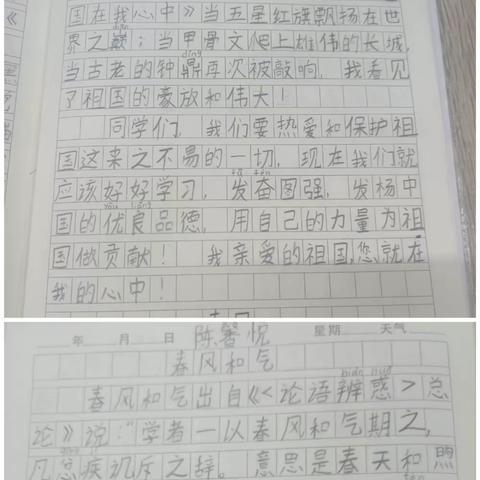 国在我心中》当五星红旗飘扬在世
diān
界之巅；当甲骨文爬上雄伟的长城，
dǐng
当古老的钟鼎再次被敲响，我看见
了祖国的豪放和伟大！
同学们，我们要热爱和保护祖
国这来之不易的一切，现在我们就
fā fèn
应该好好学习，发奋图强，发杨中
yōu liáng
国的优良品德，用自己的力量为祖
国做贡献！我亲爱的祖国，您就在
我的心中！
年 月 日 陈馨悦 星期 天气
春风和气
biàn huò
春风和气出自《<论语辨惑>总
论》说："学者一以春风和气期之，
凡忿疾讥斥之辞。意思是春天和煦